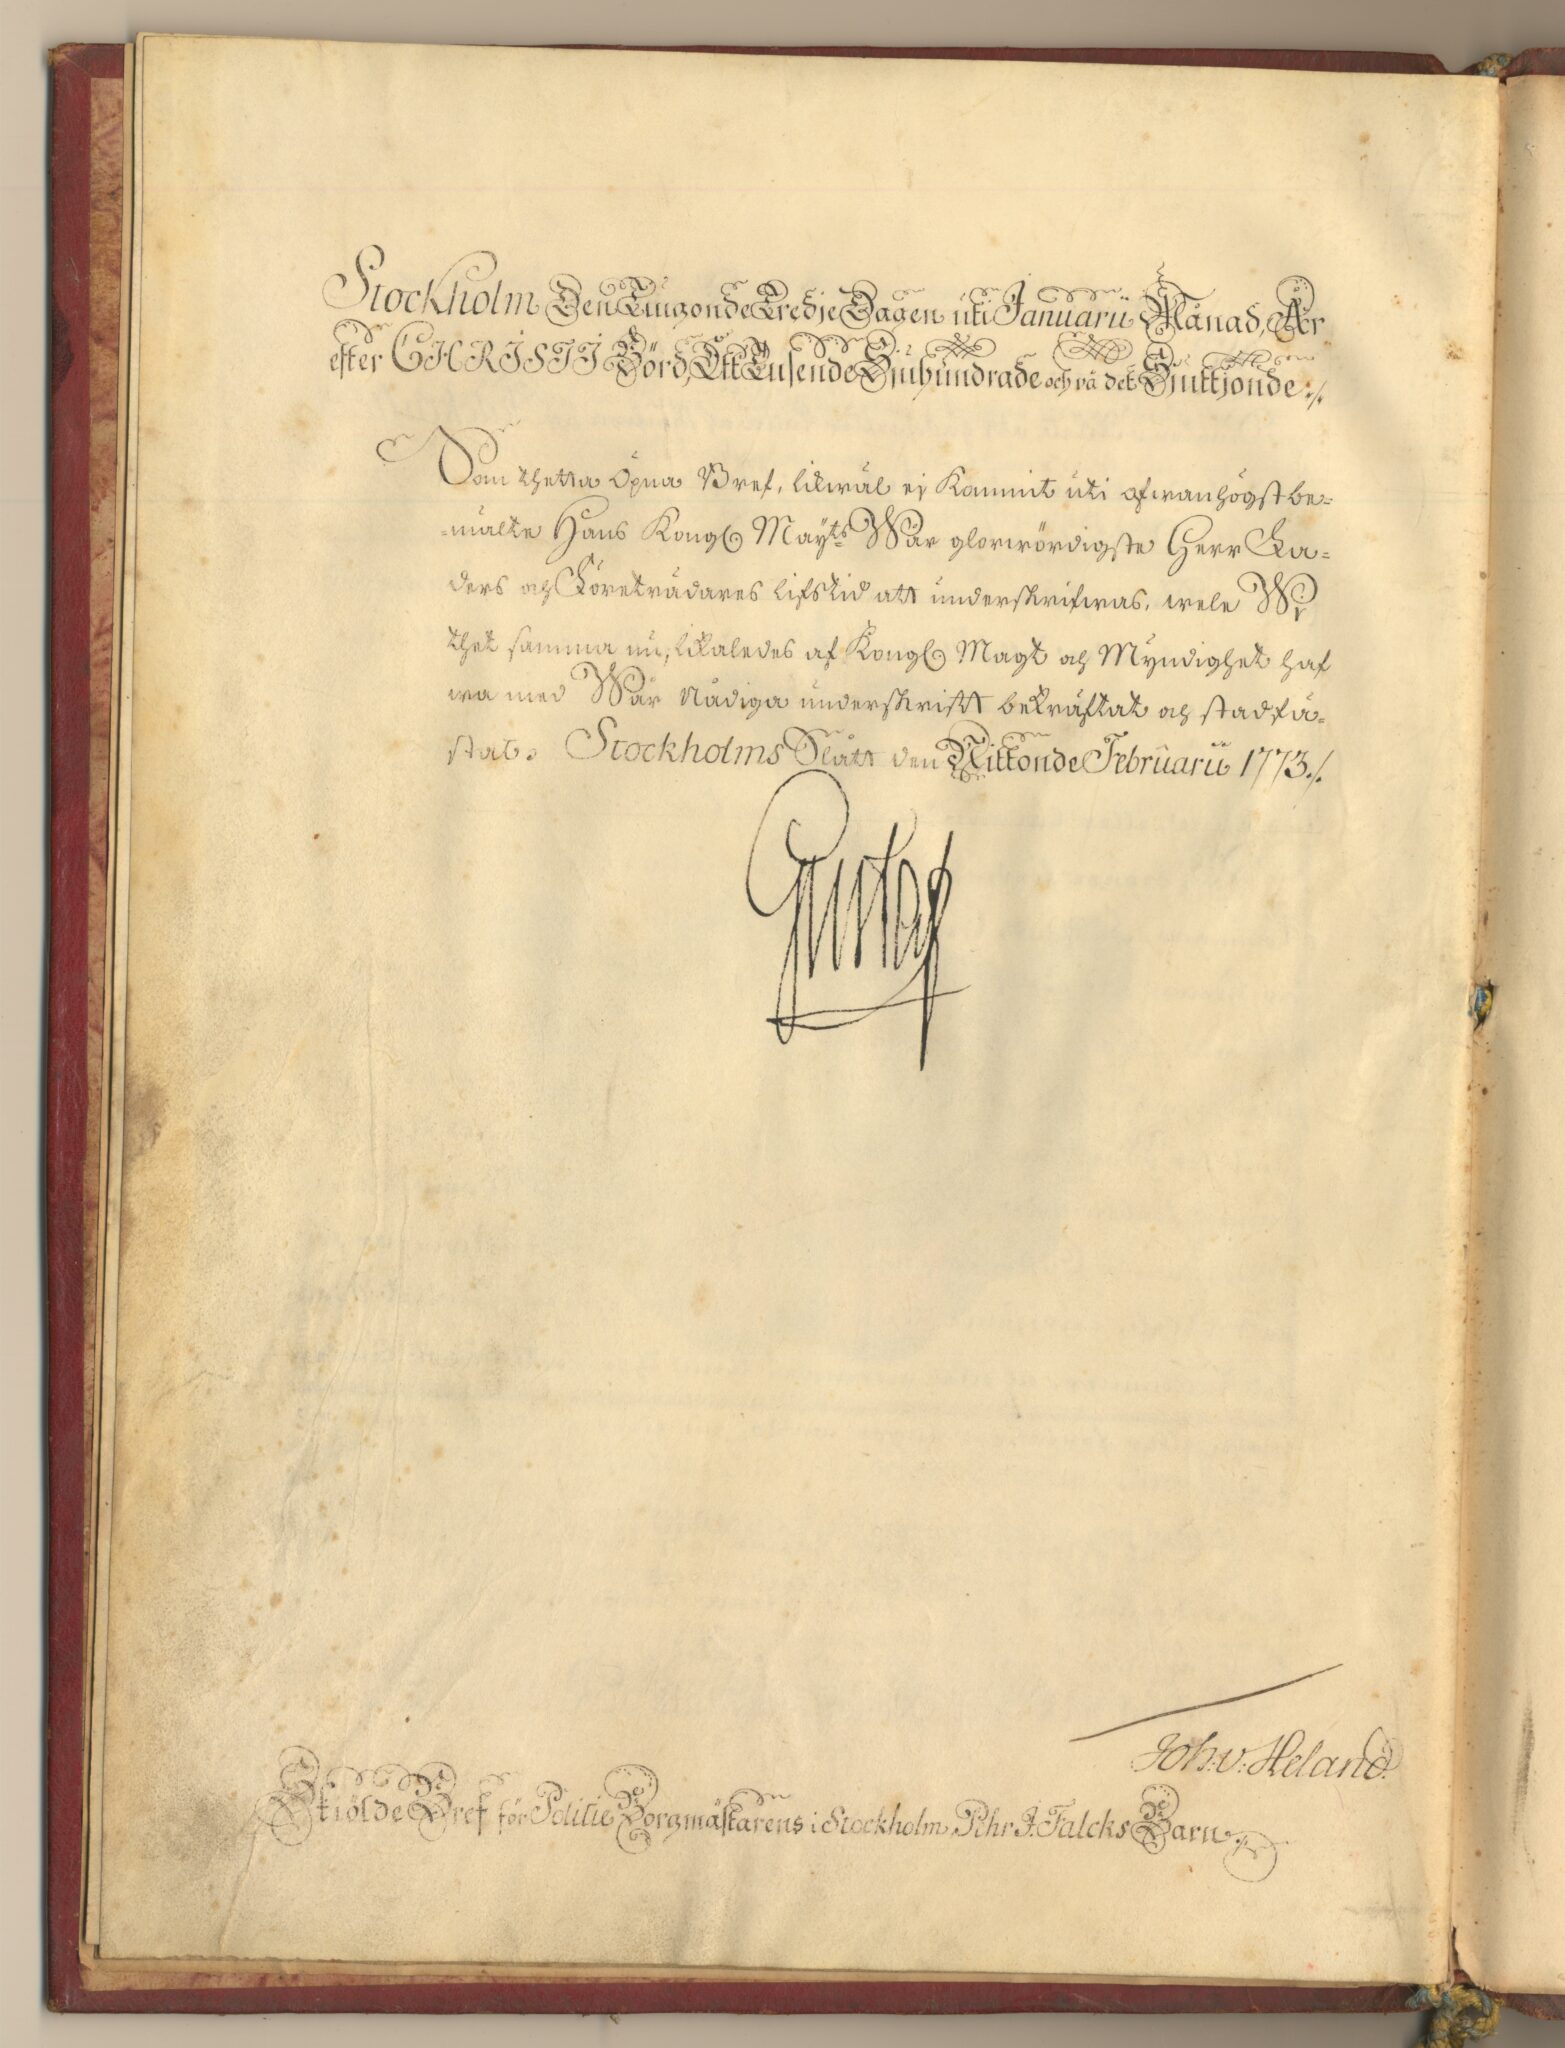 Stockholm Den Tiugonde Tredje Dagen uti Januarii Månad, År
efter CHRISTI Börd, Ett Tusende Siuhundrade och på det Siuttjonde./.
Som thetta Öpna Bref, likwäl ej kommit uti ofwanhögstbe=
=mälte Hans Kongl. Mayts Wår glorwördigste Herr Fa=
ders och Företrädares lifstid att underskrifwas, wele Wi
thet samma nu, likaledes af Kongl. Magt och Myndighet haf
wa med Wår Nådiga underskrift bekräftat och stadfä=
stat. Stockholms Slått den Nittonde Februarii 1773./.
Gustaf
Joh: v: Heland.
Skiölde Bref för Politie Borgmästarens i Stockholm, Pehr J. Falcks Barn./.